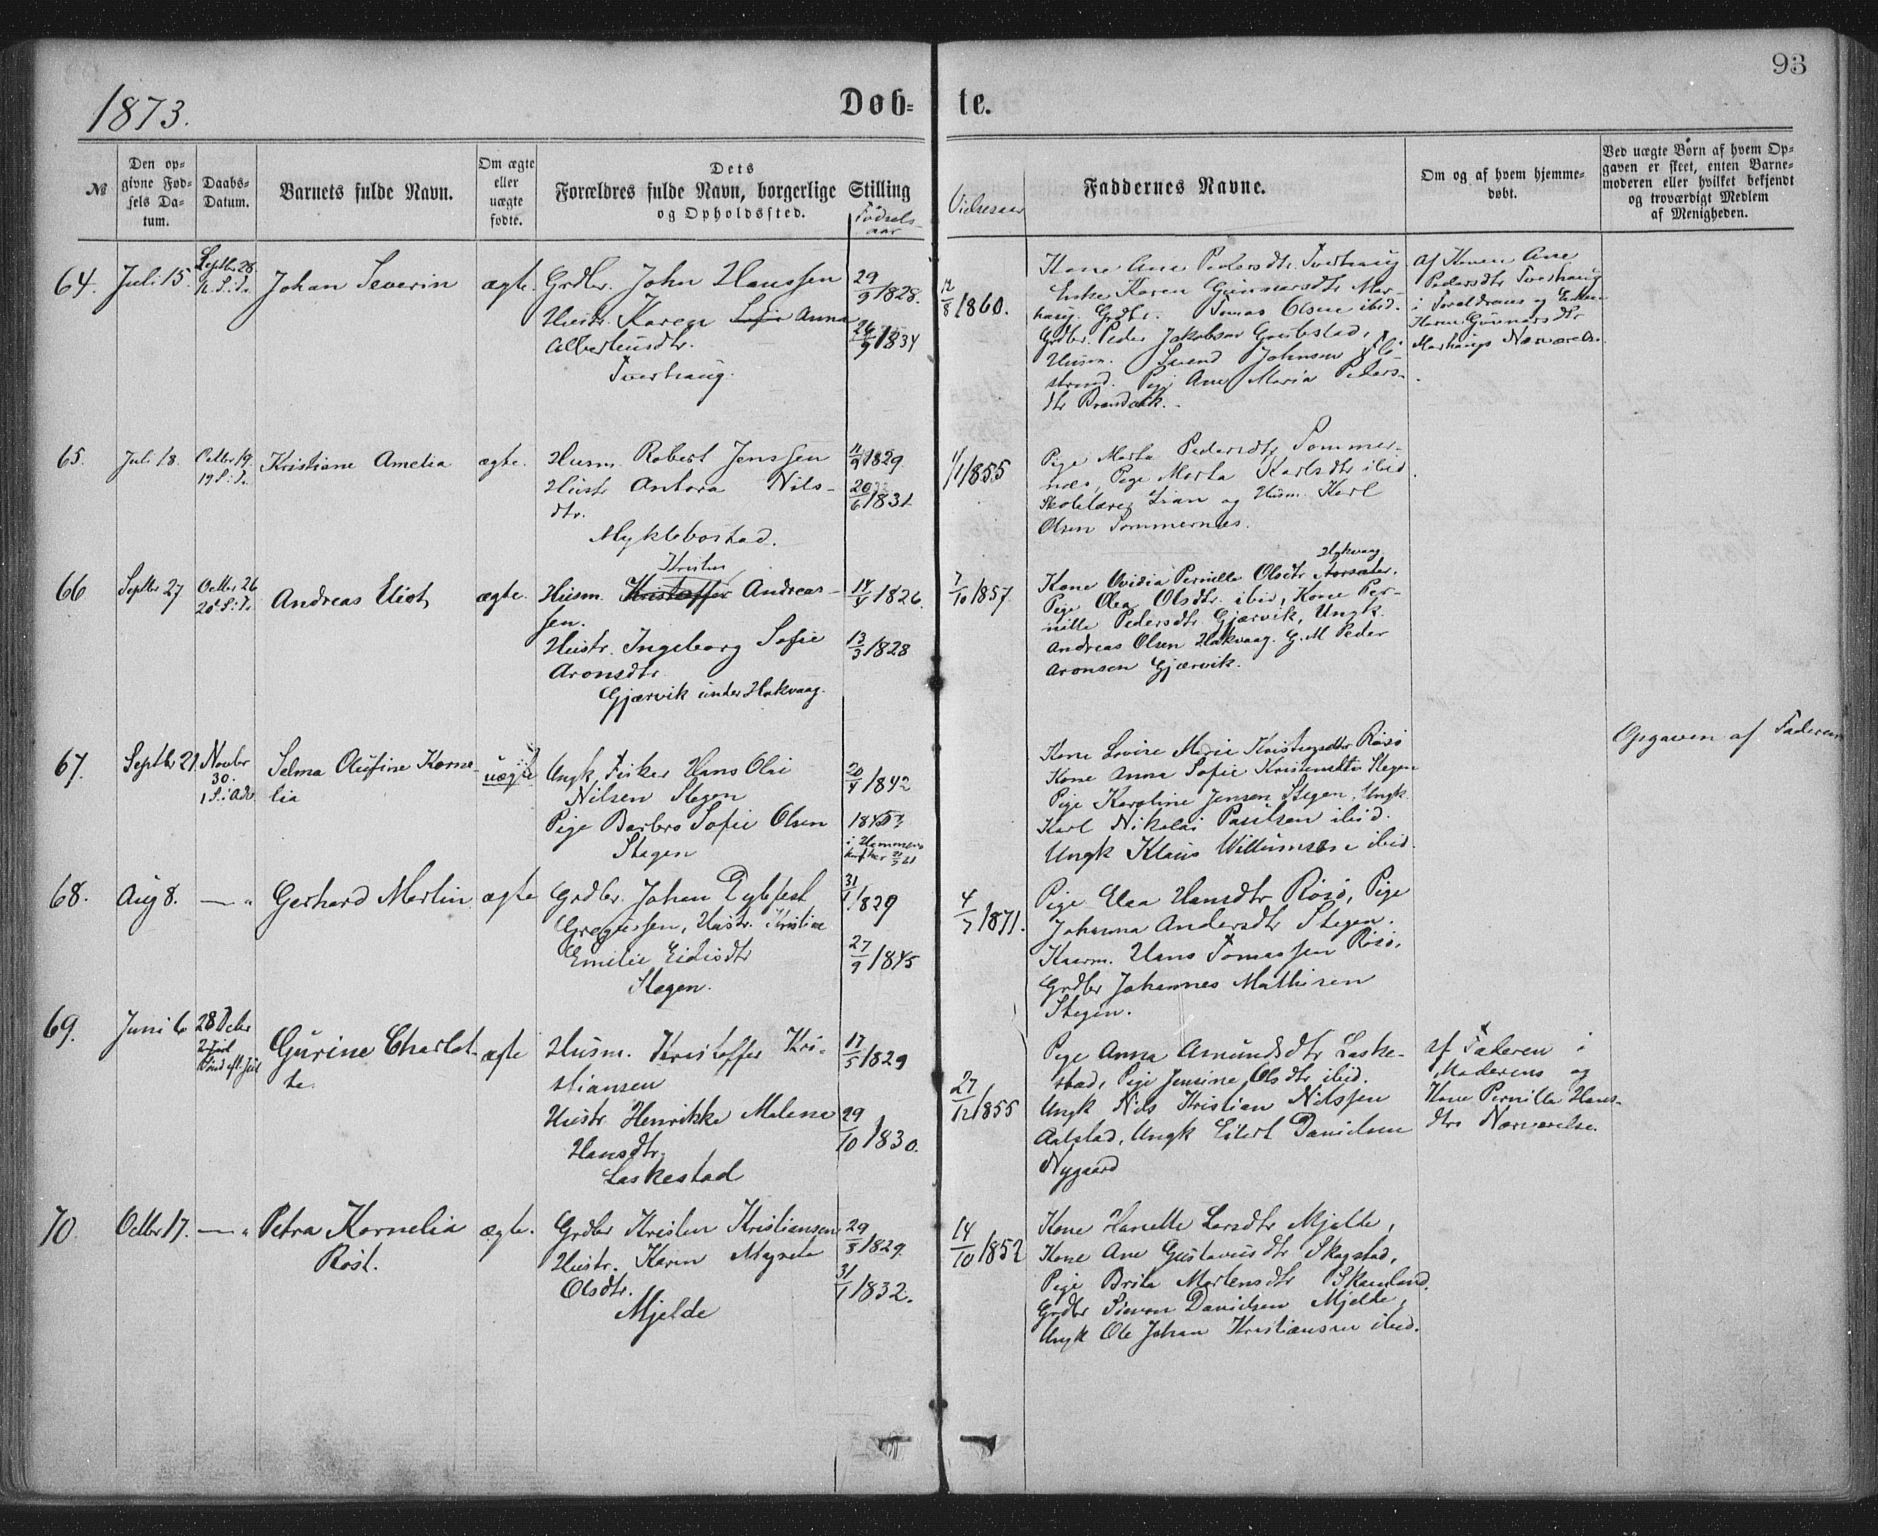 93
1873.
Døb= te.
№
Den op=
givne Fød=
sels Da=
tum.
Daabs=
Datum.
Barnets fulde Navn.
Om ægte
eller
uægte
fødte.
Dets
Forældres fulde Navn, borgerlige Stilling
og Opholdssted.
Fødsels-
aar
Vielsesaar
Faddernes Navne.
Om og af hvem hjemme=
døbt.
Ved uægte Børn af hvem Op=
gaven er skeet, enten Barne=
moderen eller hvilket bekjendt
og troværdigt Medlem
af Menigheden.
64. Juli 15. Septbr 28. Johan Severin ægte. Grdbr. John Hanssen 29/9 1828.
Hustr. Karen Sofie Anna 26/9 1834
Albertusdtr.
Tverhaug.
12/8 1860.
Kone Ane Pedersdtr. Tverhaug
Enke Karen Gunnarsdtr Mar-
haug. Grdbr. Tomas Olsen ibid.
Grdbr. Peder Jakobsen
Husm. Svend Johnsen Flo-
strand. Pige Ane Maria Peders-
dtr
af Konen Ane
Pedersdtr Tverhaug
i Foreldrenes og Enken
Karen Gunnarsdtr
Marhaugs Nærværelse.
65. Juli 18. Octbr 19. Kristiane Amelia ægte. Husm. Robert Jenssen 1829
19 S. i Tr. Hustr Antora Nils- 20/6 1831
dtr.
Myklebostad.
1/1 1855
Pige Marta Pedersdtr Sommer-
nes, Pige Marta Karlsdtr ibid
Skolelærer Lian og Husm. Karl
Olsen Sommernes.
66 Septbr 27 Octbr 26 Andreas Eliot ægte. Husm. Kristoffer Andreas- 14/4 1826.
Kristen
20 S. i Tr.
sen.
Hustr. Ingeborg Sofie 13/3 1828
Aronsdtr.
Gjærvik under Hakvaag.
7/10 1857.
Hakvaag
Kone Ovidia Pernille Olsdtr
Pige Olea Olsdtr. ibid, Kone Per-
nille Pedersdtr Gjærvik, Ungk.
Andreas Olsen Hakvaag. G.M Peder
Aronsen Gjærvik.
67. Septbr 21. Novbr Selma Olufine Korne- uægte Ungk. Fisker Hans Olai 20/4 1842
30.
1 S. i Adv. lia Nilsen Stegen
Pige Barbro Sofie Olsen
Stegen
Kone Lovise Marie Kristensdtr Røsø
Kone Anna Sofie Kristensdtr Stegen
Pige Karoline Jensen Stegen. Ungk
Karl Nikolai Paulsen ibid.
Ungk Klaus Willumsen ibid.
Opgaven af Faderen
68. Aug 8. — " Gerhard Martin ægte Grdbr. Johan Dybfest 31/1 1829
Gregussen, Hustr. Kristine
Emelie Eidisdtr 27/9 1845
Stegen.
4/7 1871.
Pige Elea Hansdtr Røsø, Pige
Johanna Andersdtr Stegen.
Kaarm. Hans Tomassen Røsø.
Grdbr Johannes Mathisen
Stegen.
69. Juni 6 28 Decbr Gurine Charlot- ægte Husm. Kristoffer Kri- 17/5 1829
te. stiansen
Hustr Henrikke Malena 29/10 1830.
Hansdtr.
Laskestad
27/12 1855
Pige Anna Amundsdtr Laske-
stad, Pige Jensine Olsdtr ibid.
Ungk Nils Kristian Nilssen
Aalstad, Ungk Eilert Danielsen
Nygaard
af Faderen i
Moderens og
Kone Pernille Hans-
dtrs Nærværelse.
70. Octbr 17. — " Petra Kornelia ægte. Grdbr Kristen Kristiansen 29/8 1829.
Røst. Hustr. Karen Margreta 31/1 1832.
Olsdtr.
Mjelde
14/10 1852
Kone Hanette Larsdtr Mjelde,
Kone Ane Gustavusdtr Skagstad,
Pige Brita Mortensdtr Skamland.
Grdbr Simon Danielsen Mjelde,
Ungk Ole Johan Kristiansen ibid.